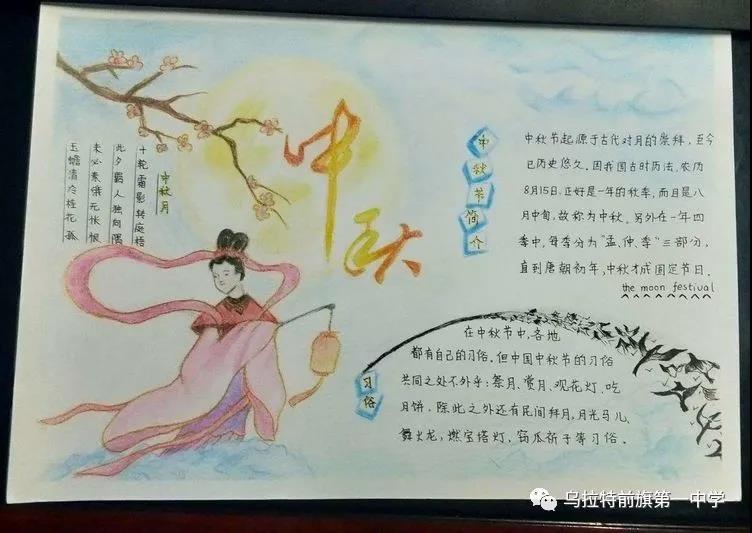 中秋
中秋月
十轮霜影转庭梧
此夕羁人独向隅
未必素娥无怅恨
玉蟾清冷桂花孤
中秋节简介
中秋节起源于古代对月的崇拜，至今
已历史悠久。因我国古时历法，农历
8月15日，正好是一年的秋季，而且是八
月中旬，故称为中秋。另外在一年四
季中，每季分为“孟、仲、季”三部分，
直到唐朝初年，中秋才成固定节日。
the moon festival
习俗
在中秋节中，各地
都有自己的习俗。但中国中秋节的习俗
共同之处不外乎：祭月、赏月、观花灯、吃
月饼．除此之外还有民间拜月，月光马儿、
舞火龙，燃宝塔灯、窃瓜祈子等习俗。
乌拉特前旗第一中学